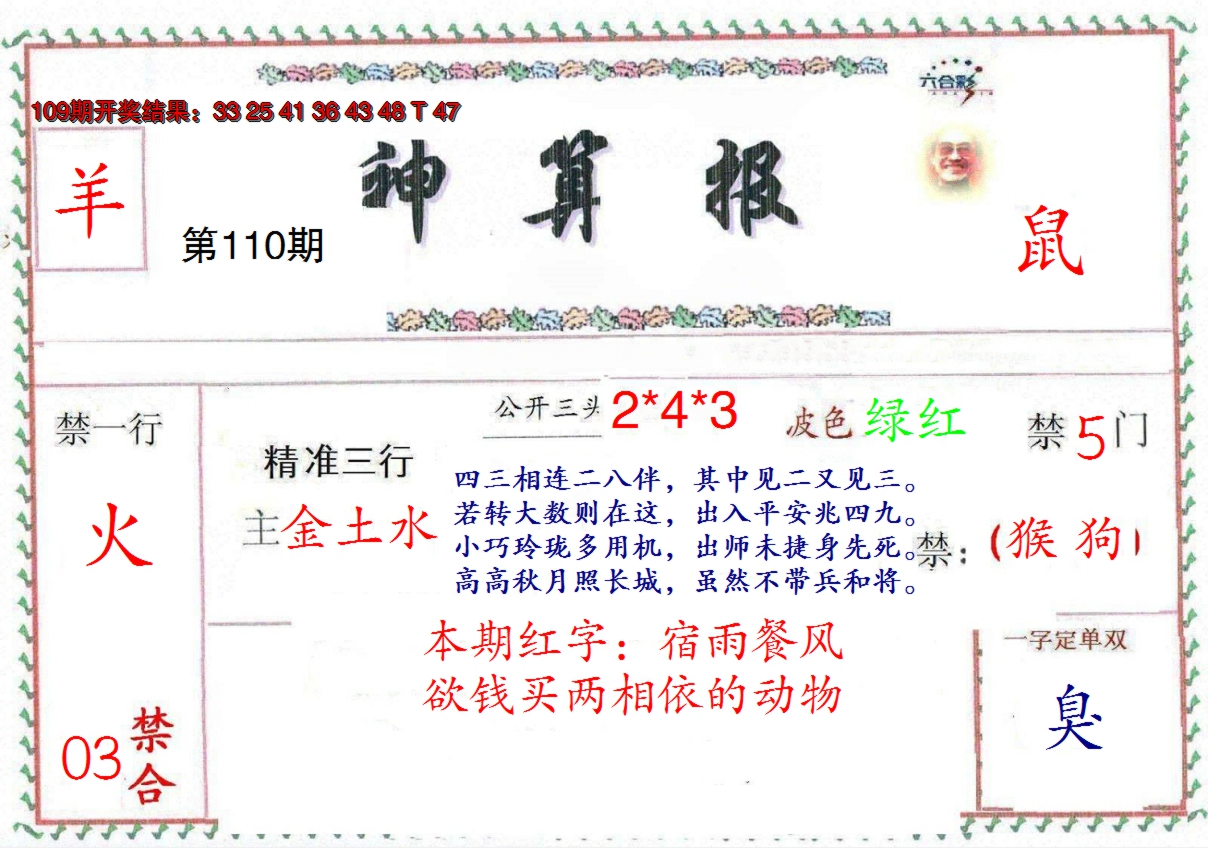 六合彩
109期开奖结果：33 25 41 36 43 48 T 47
神算报
羊
第110期
鼠
禁一行
火
03
禁合
精准三行
主金土水
公开三头 2*4*3
波色 绿红
禁5门
四三相连二八伴，其中见二又见三。
若转大数则在这，出入平安兆四九。
小巧玲珑多用机，出师未捷身先死。
高高秋月照长城，虽然不带兵和将。
禁：（猴 狗）
本期红字：宿雨餐风
欲钱买两相依的动物
一字定单双
臭